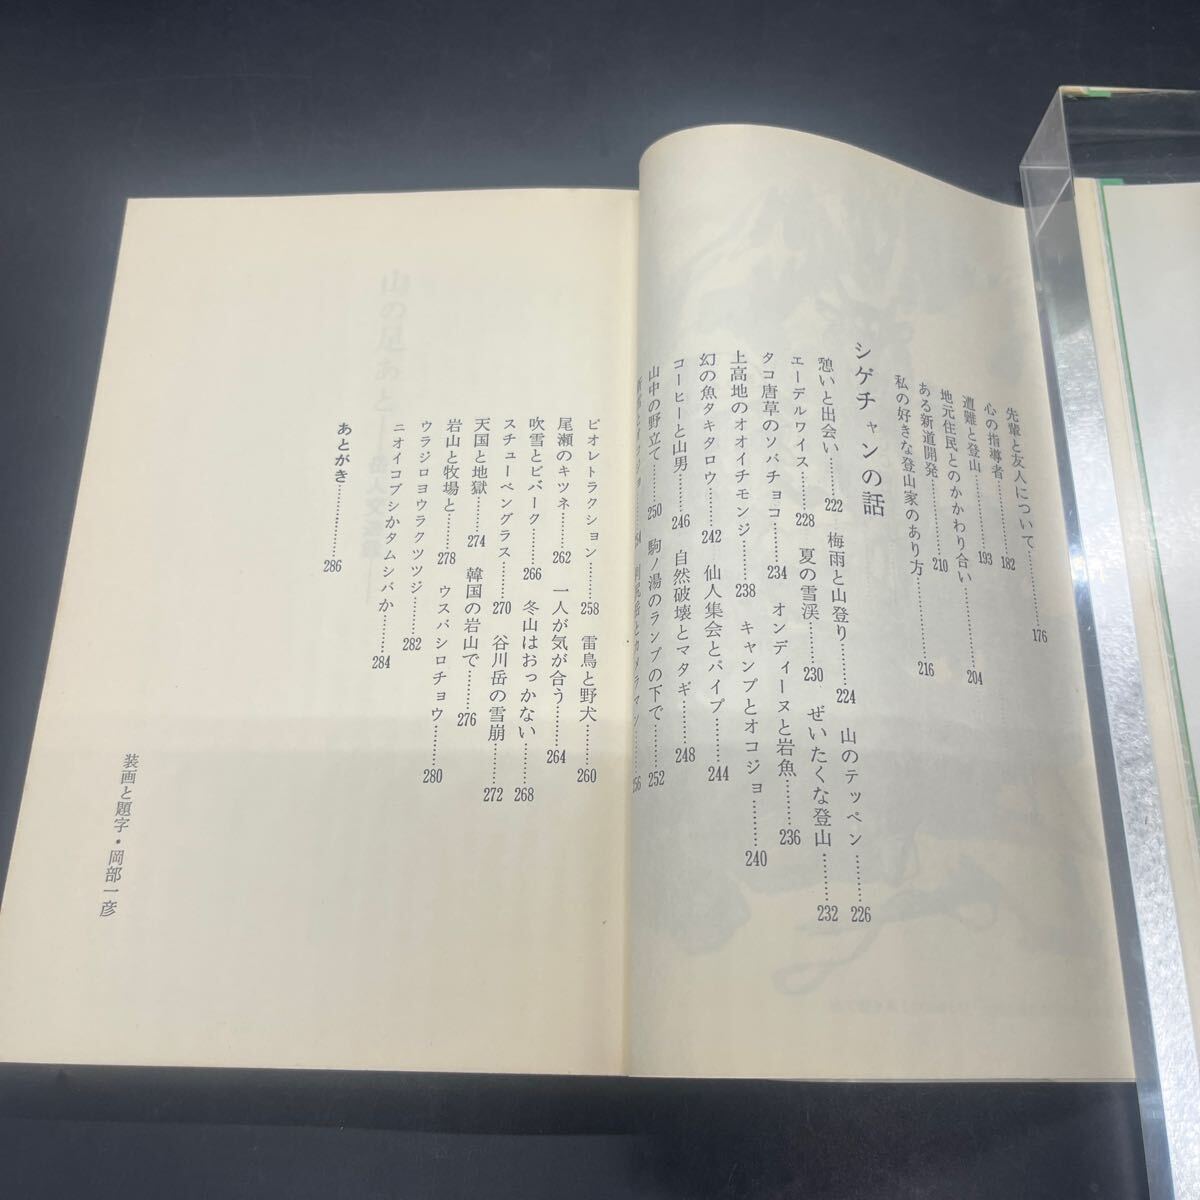 先輩と友人について………………176
心の指導者………………182
遭難と登山………………193
地元住民とのかかわり合い………………204
ある新道開発………………210
私の好きな登山家のあり方………………216
シゲチャンの話
憩いと出会い………222　梅雨と山登り………224　山のテッペン………226
エーデルワイス………228　夏の雪渓………230　ぜいたくな登山………232
タコ唐草のソバチョコ………234　オンディーヌと岩魚………236
上高地のオオイチモンジ………238　キャンプとオコジョ………240
幻の魚タキタロウ………242　仙人集会とパイプ………244
コーヒーと山男………246　自然破壊とマタギ………248
山中の野立て………250　駒ノ湯のランプの下で………252
利尻岳とカメラマン………256
ピオレトラクション………258　雷鳥と野犬………260
尾瀬のキツネ………262　一人が気が合う………264
吹雪とビバーク………266　冬山はおっかない………268
スチューベングラス………270　谷川岳の雪崩………272
天国と地獄………274　韓国の岩山で………276
岩山と牧場と………278　ウスバシロチョウ………280
ウラジロヨウラクツツジ………282
ニオイコブシかタムシバか………284
あとがき………………286
装画と題字・岡部一彦